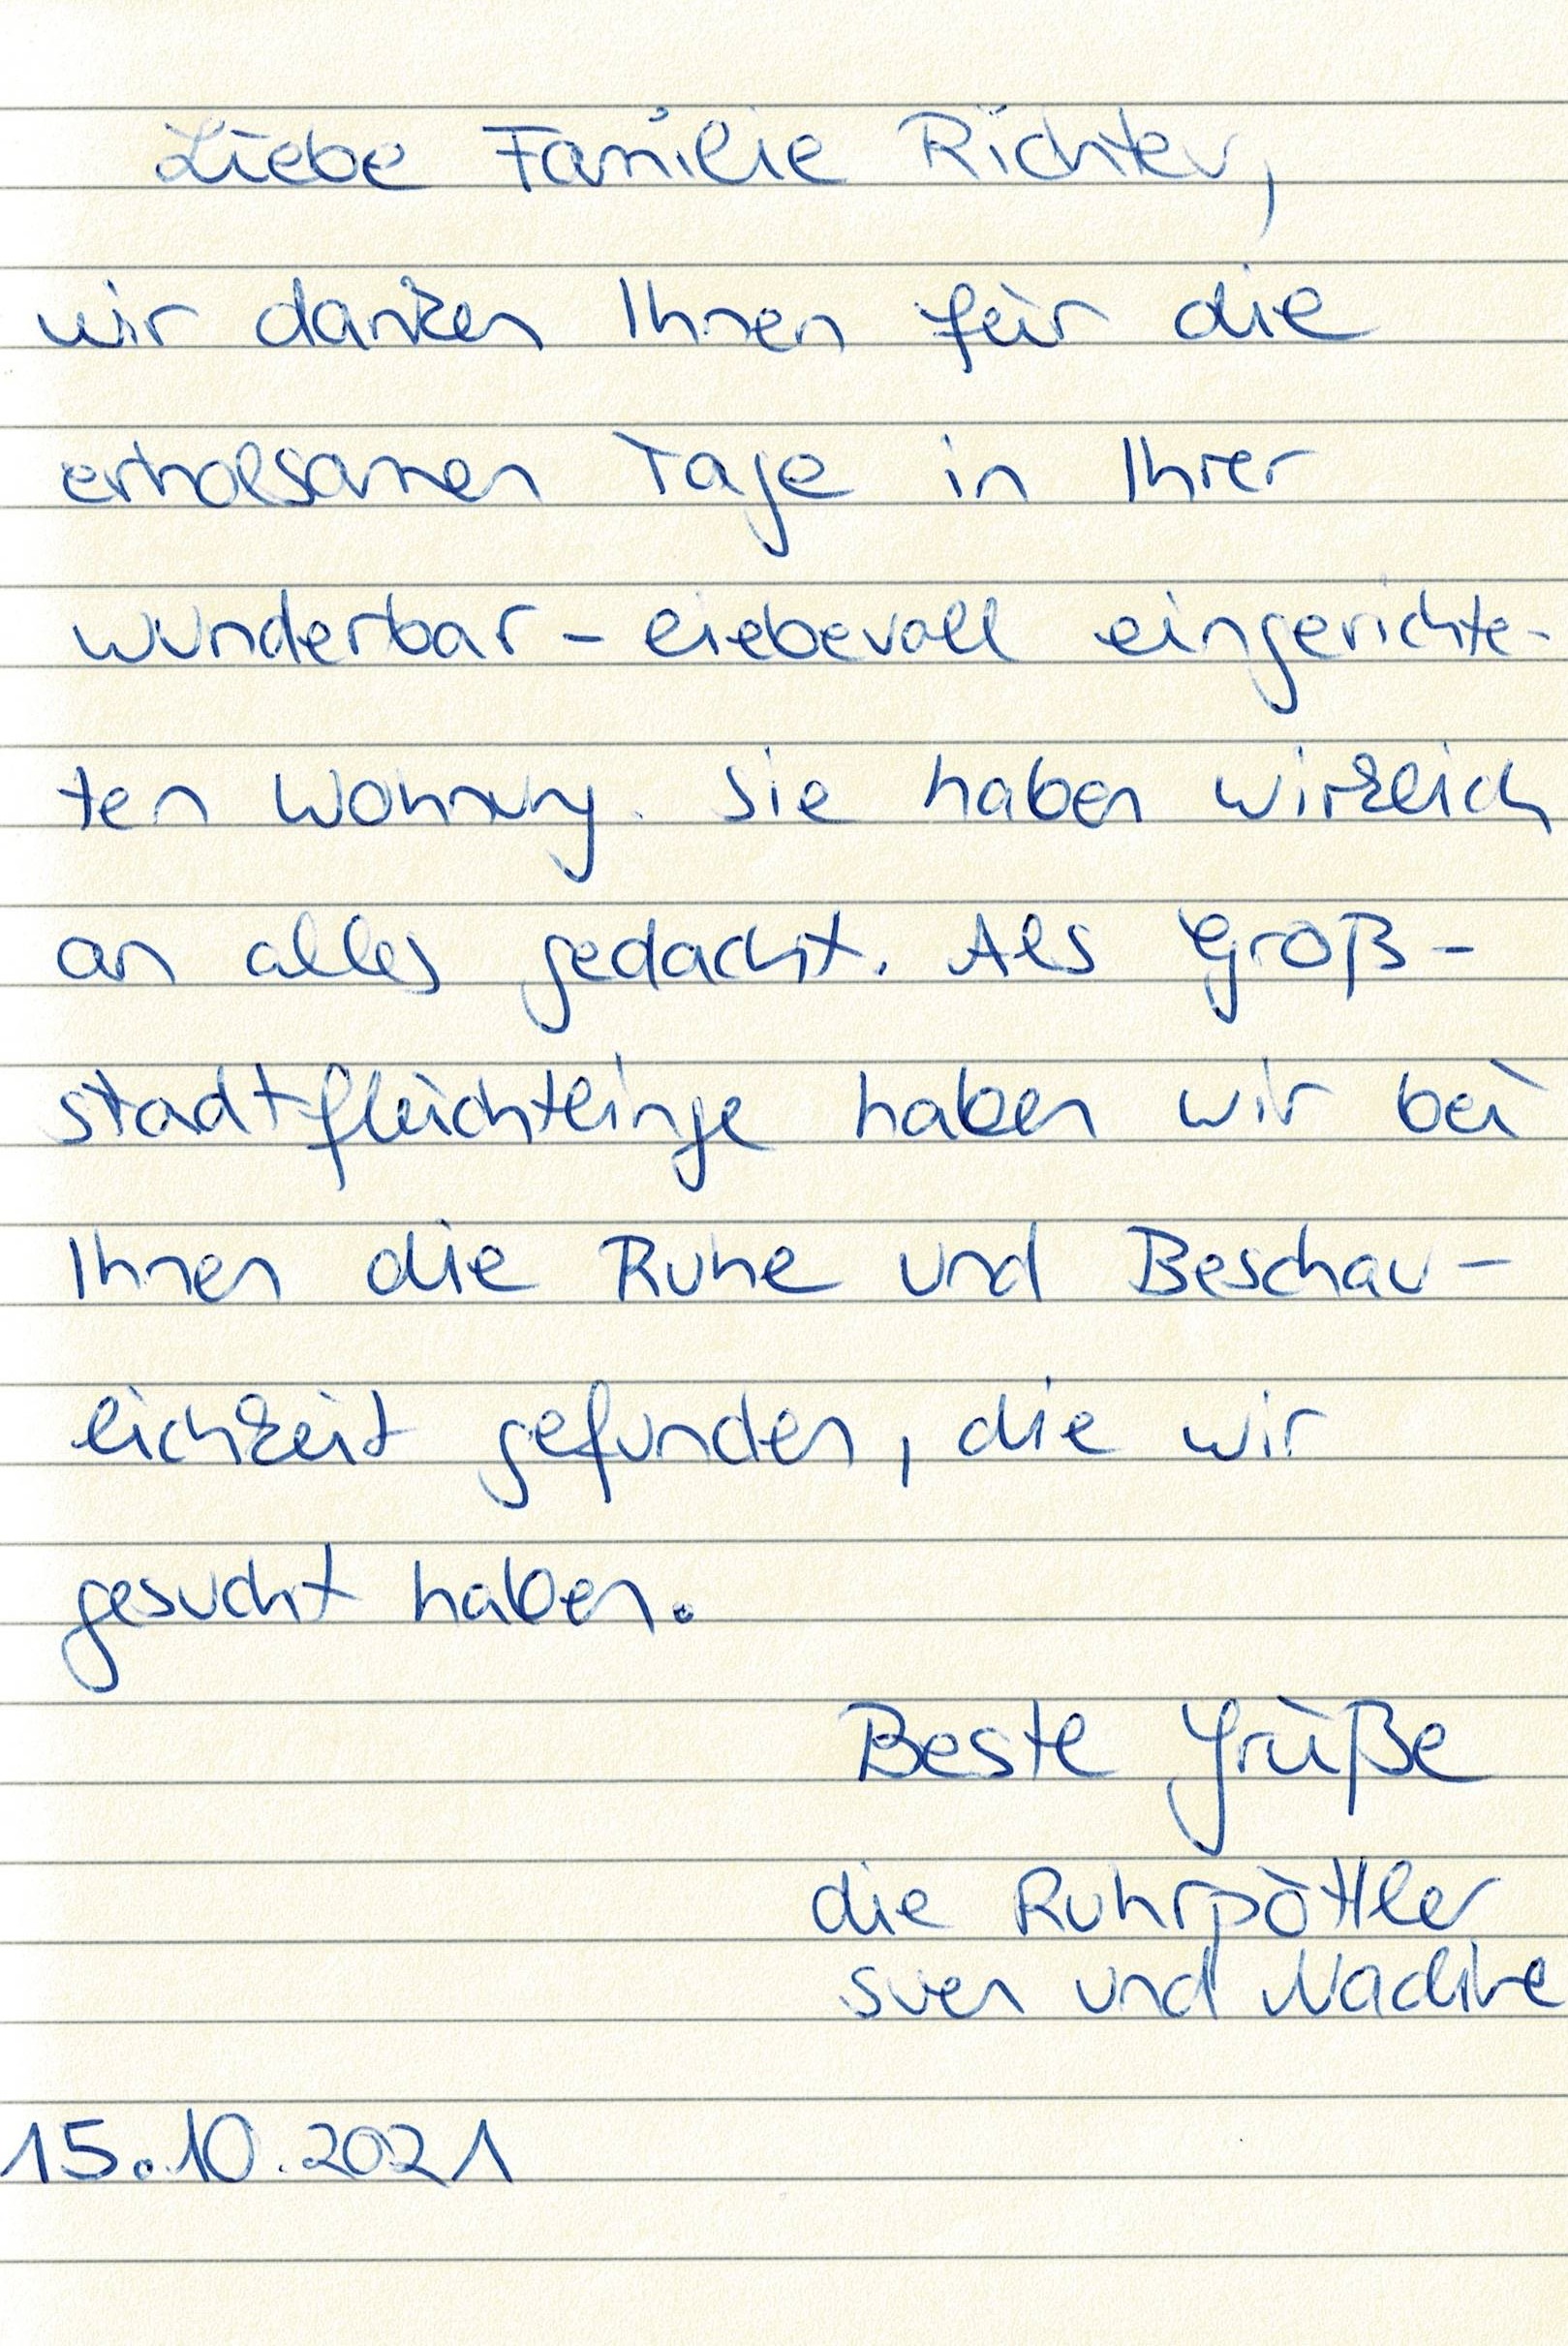 Liebe Familie Richter,
wir danken Ihnen für die
erholsamen Tage in Ihrer
wunderbar - liebevoll eingerichte-
ten Wohnung. Sie haben wirklich
an alles gedacht. Als Groß-
stadtflüchtlinge haben wir bei
Ihnen die Ruhe und Beschau-
lichkeit gefunden, die wir
gesucht haben.
Beste Grüße
die Ruhrpöttler
Sven und Nadine
15.10.2021